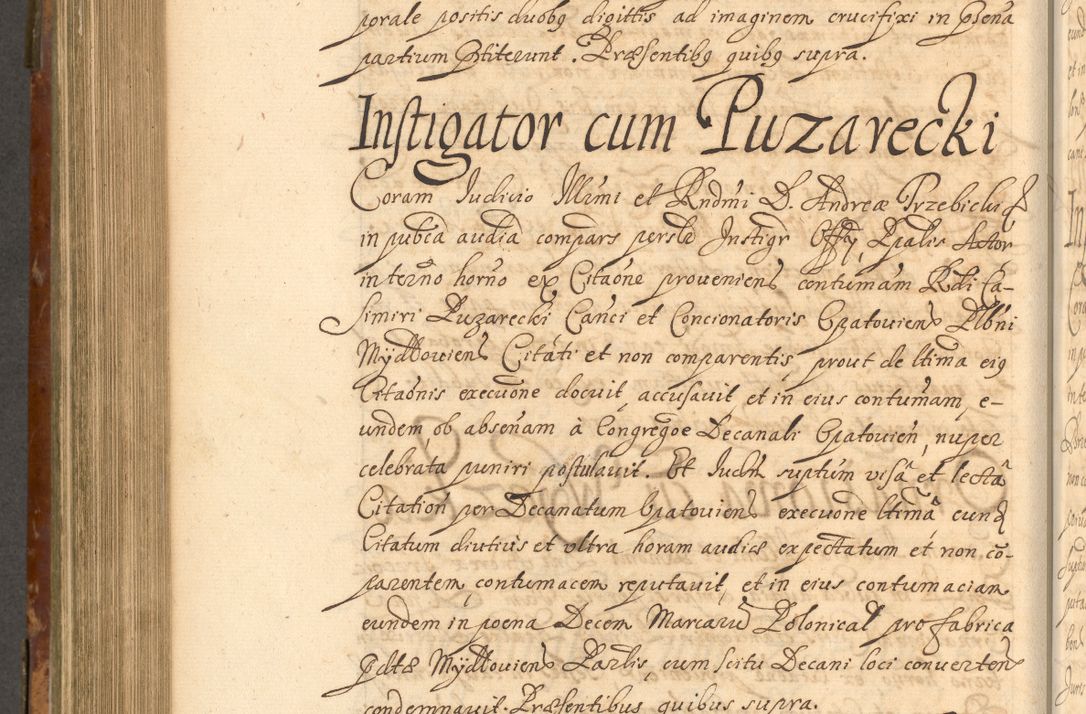 porale positis duobq digittis ad imaginem crucifixi in psena
partium pstiterunt. Præsentibq quibq supra.
Instigator cum Puzarecki
Coram Iudicio Illmi et Rndmi D. Andreæ Przebicki
in pubca audia compars persle Instigr Offy Epalis Actor
in terno horno ex Citaone proueniens contumam Rdi Ca-
simiri Puzarecki Canci et Concionatoris Opatouiens Plbni
Mydlouiens Citati et non comparentis, prout de ltima eiq
Citaonis execuone docuit, accusauit et in eius contumam, e-
undem, ob absenam à Congregoe Decanali Opatouien, nuper
celebrata puniri postulauit. Et Iudm suptum visa et lecta
Citation per Decanatum Opatouiens execuone ltima, eund
Citatum diutius et vltra horam audiæ expectatum et non co-
parentem, contumacem reputauit, et in eius contumaciam
eundem in poena Decem Marcaru Polonical pro fabrica
pdtæ Mydlouiens Parlis, cum scitu Decani loci conuertens
condemnauit. Præsentibus quibus supra.